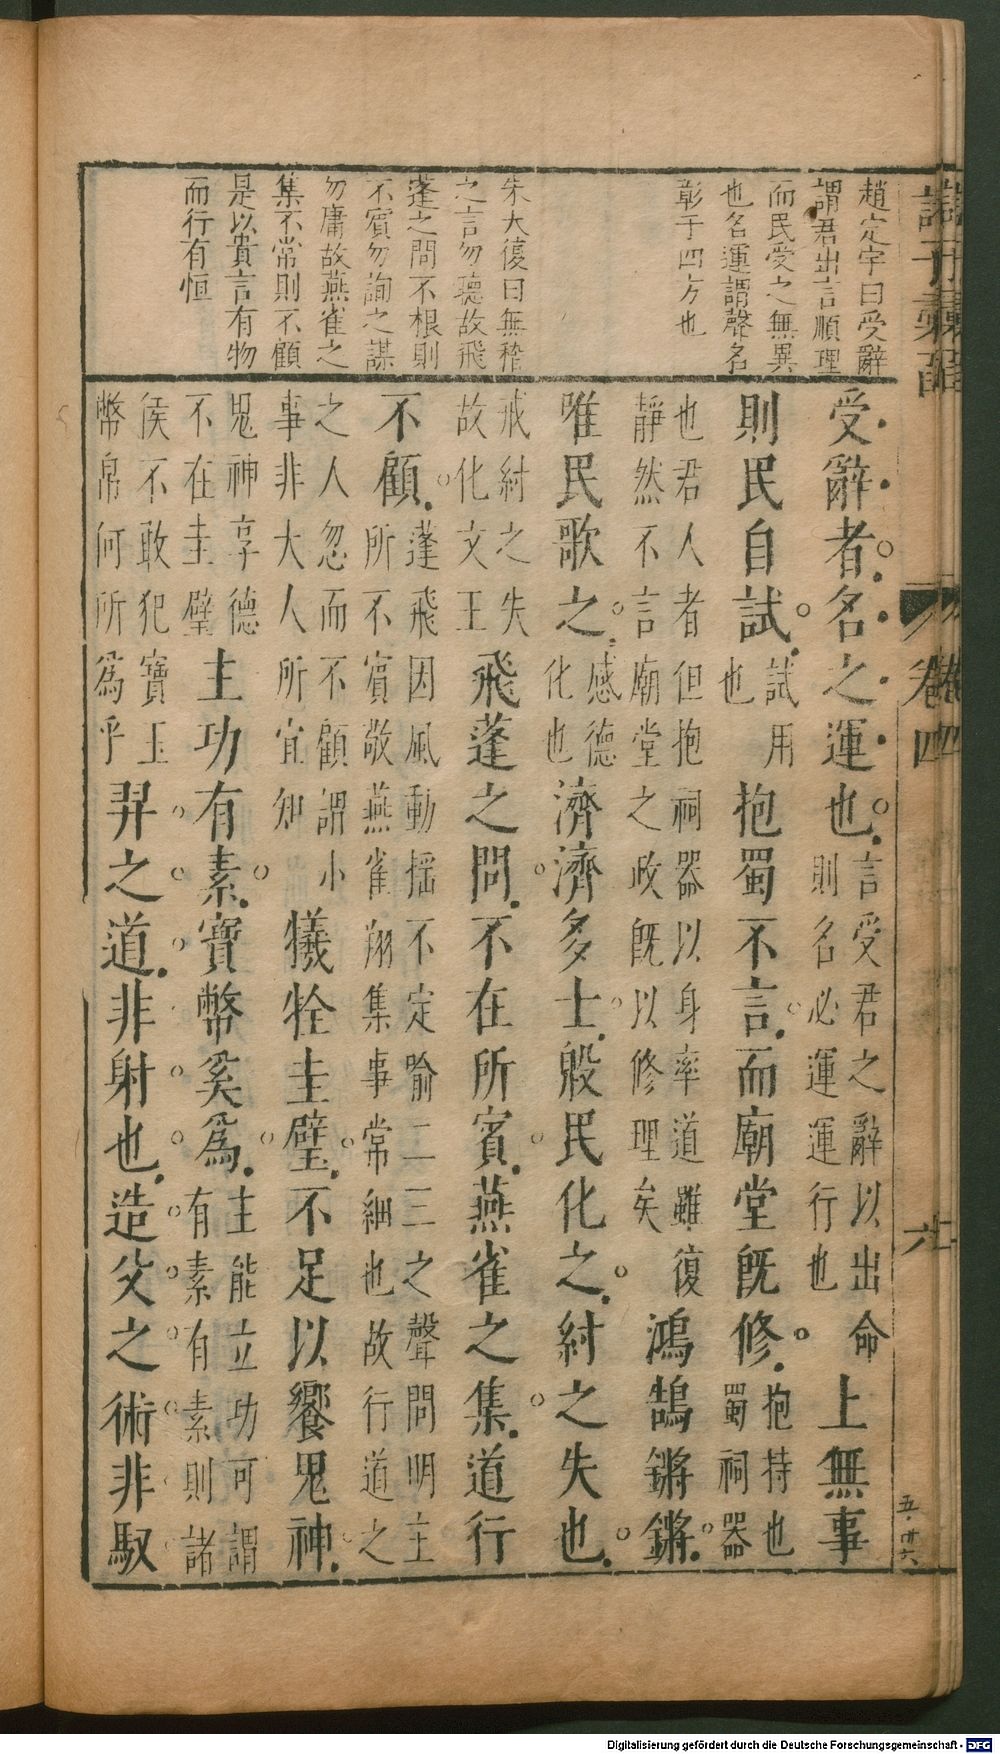 趙定宇曰受辭
謂君出言順理
而民受之無異
也名運謂聲名
彰于四方也
朱大復曰無稽
之言勿聽故飛
蓬之問不根則
不賓勿詢之謀
勿庸故燕雀之
集不常則不顧
是以貴言有物
而行有恒
受辭者名之運也言受君之辭以出命則名必運運行也上無事
則民自試試用也抱蜀不言而廟堂旣修抱持也蜀祠器
也君人者但抱祠器以身率道雖復靜然不言廟堂之政旣以修理矣鴻鵠鏘鏘
唯民歌之感德化也濟濟多士殷民化之紂之失也
戒紂之失故化文王飛蓬之問不在所賓燕雀之集道行
不顧蓬飛因風動揺不定喻二三之聲問明主所不賓敬燕雀翔集事常細也故行道之
之人忽而不顧謂小事非大人所宜知犧牷圭璧不足以饗鬼神
鬼神享德不在圭璧主功有素寶幣奚爲主能立功可謂有素有素則諸
侯不敢犯寶玉幣帛何所爲乎羿之道非射也造父之術非馭
卷四
五·廿六
Digitalisierung gefördert durch die Deutsche Forschungsgemeinschaft - DFG